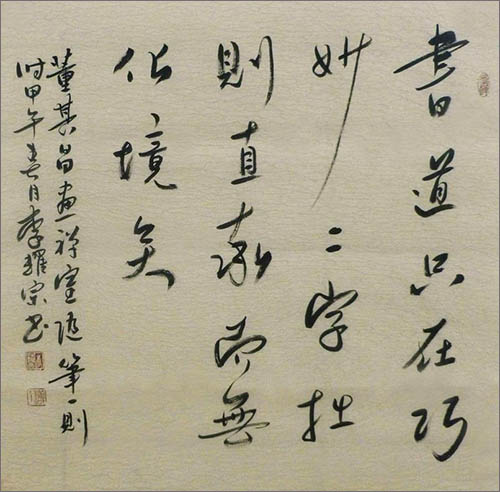 書道只在巧
妙二字拙
則直率即無
化境矣
董其昌畫禅室随筆一則
时甲午春月李耀宗书